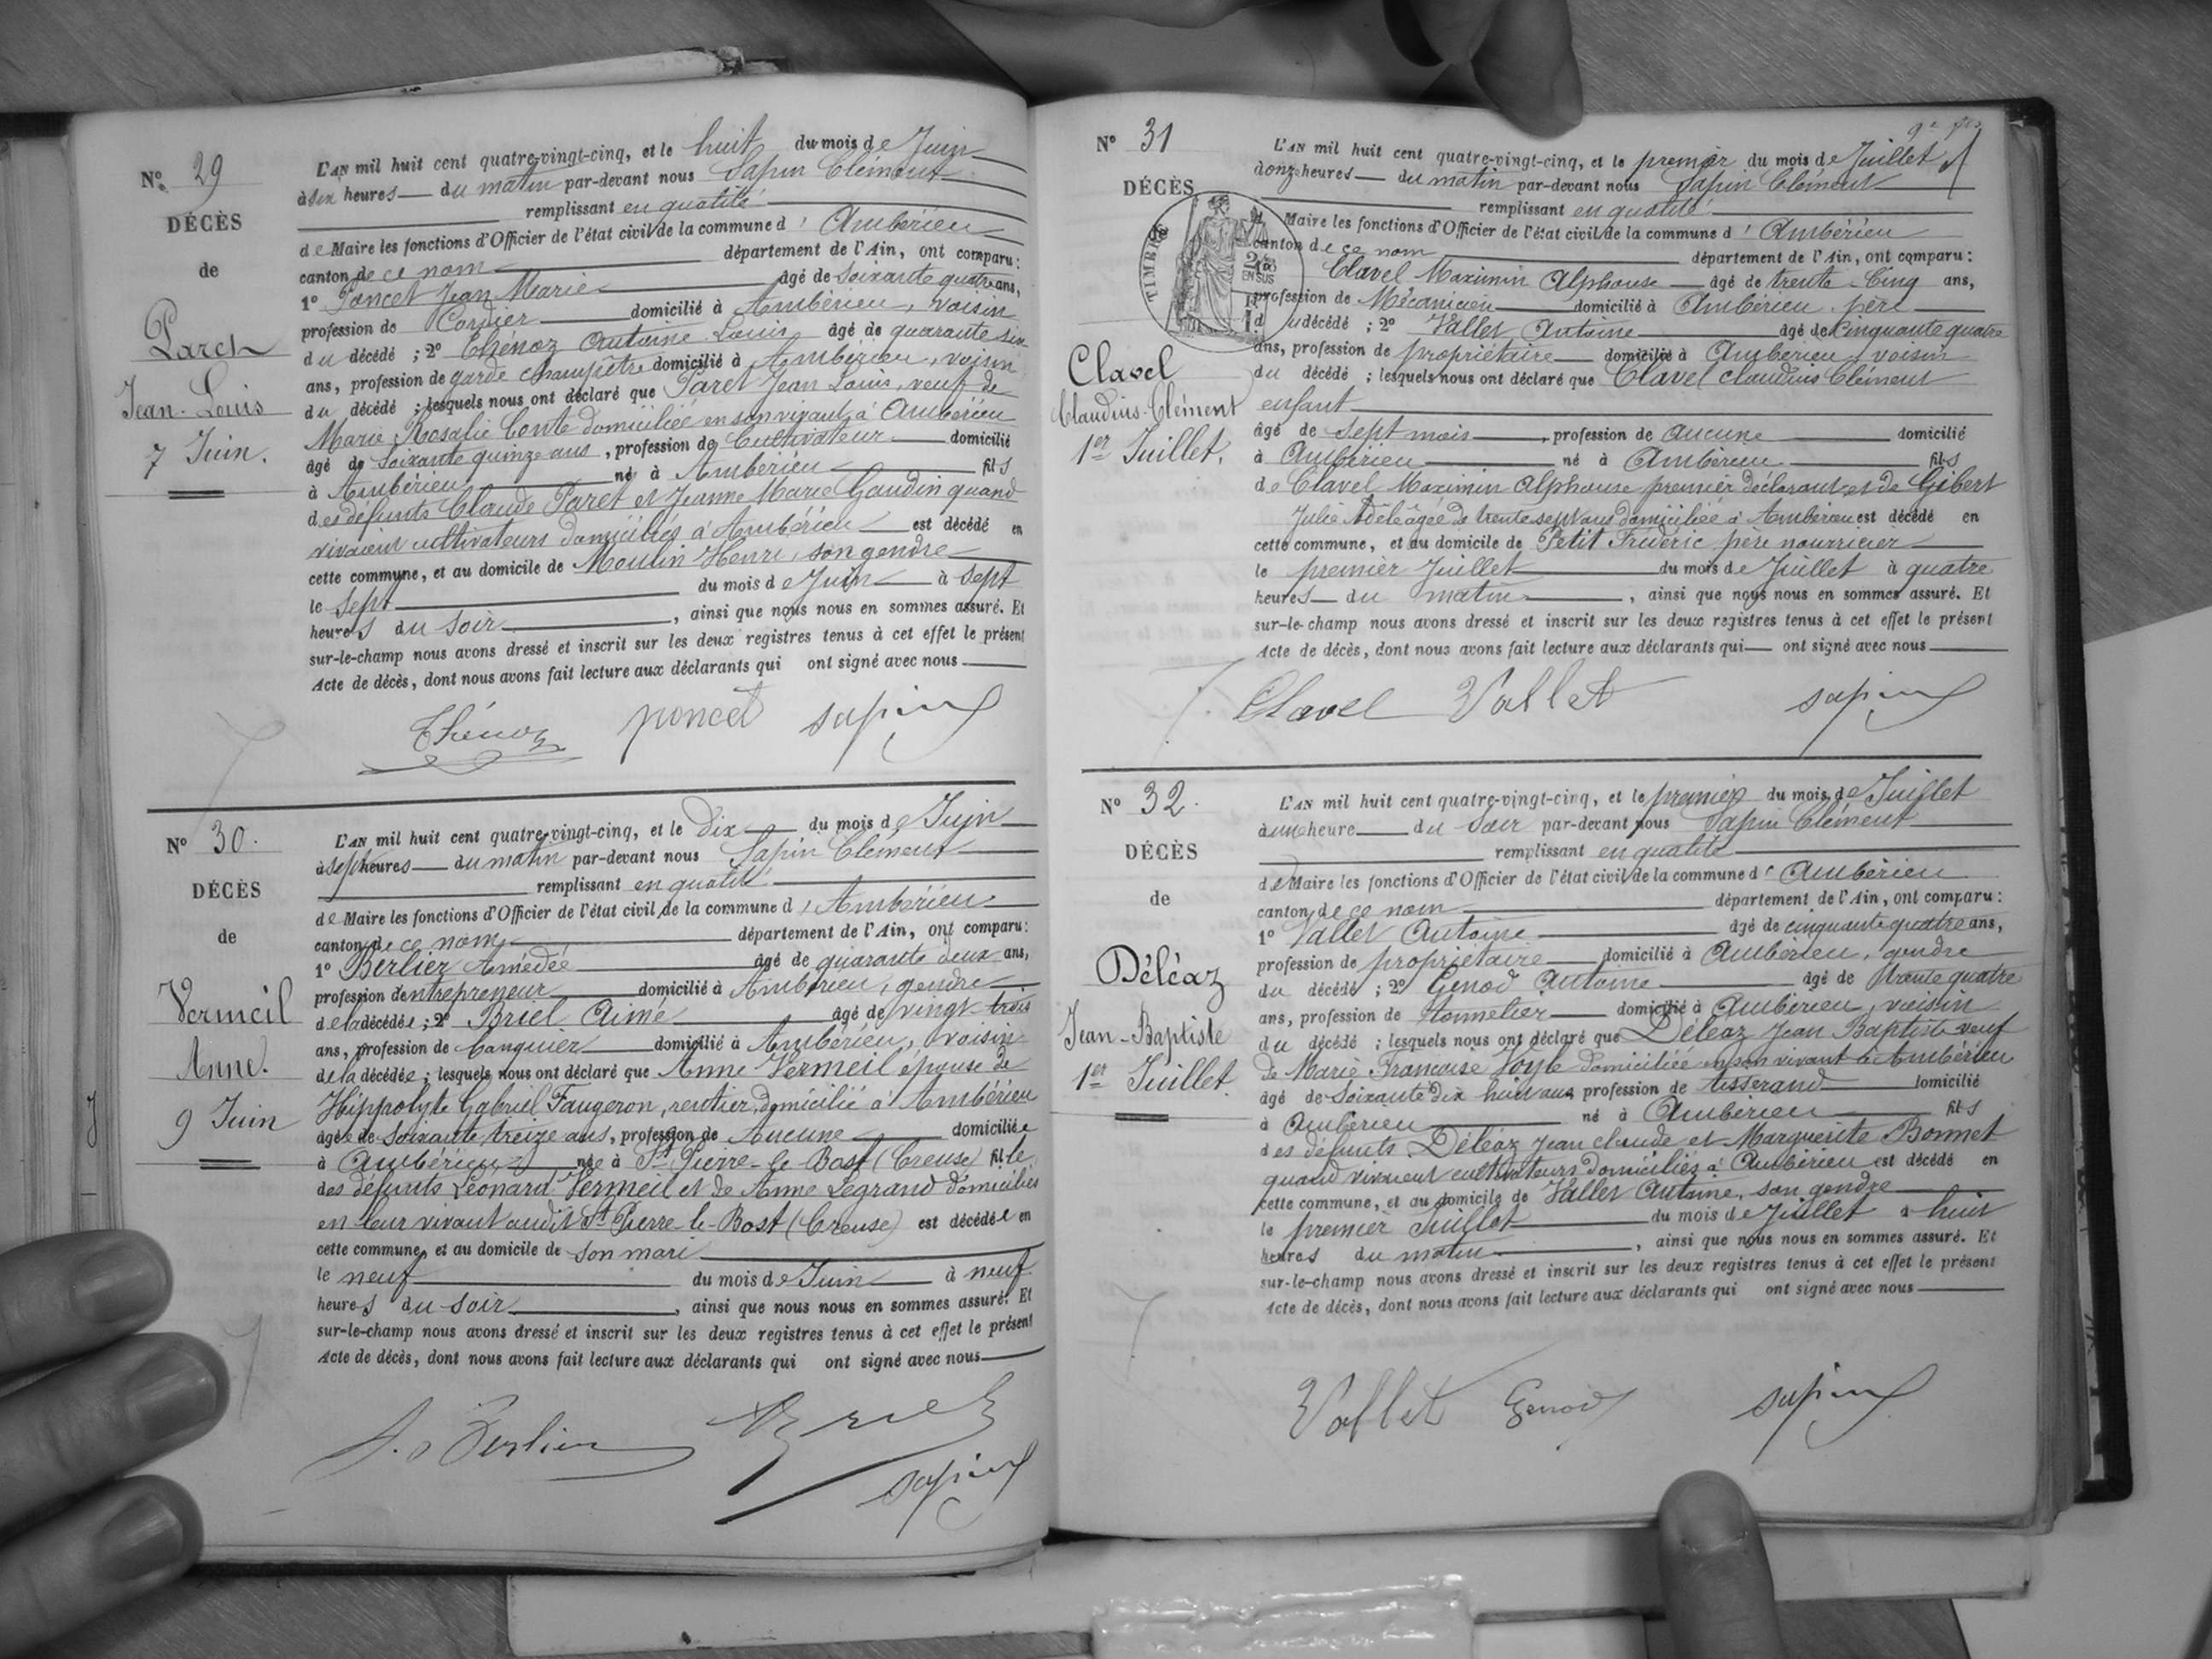 N° 29
DÉCÈS
de
Paret
Jean-Louis
7 Juin.
L'AN mil huit cent quatre-vingt-cinq, et le huit du mois de Juin
à six heures du matin par-devant nous Sapin Clément
remplissant en qualité
de Maire les fonctions d'Officier de l'état civil de la commune d'Ambérieu
canton de ce nom département de l'Ain, ont comparu:
1° Poncet Jean Marie âgé de soixante quatre ans,
profession de Cordier domicilié à Ambérieu, voisin
du décédé ; 2° Thénoz Antoine Louis âgé de quarante six
ans, profession de garde champêtre domicilié à Ambérieu, voisin
du décédé ; lesquels nous ont déclaré que Paret Jean Louis, veuf de
Marie Rosalie Conte domiciliée en son vivant à Ambérieu
âgé de soixante quinze ans, profession de Cultivateur domicilié
à Ambérieu né à Ambérieu fils
des défunts Claude Paret et Jeanne Marie Gaudin quand
vivaient cultivateurs domiciliés à Ambérieu est décédé en
cette commune, et au domicile de Moulin Henri, son gendre
le sept du mois de Juin à sept
heures du soir, ainsi que nous nous en sommes assuré. Et
sur-le-champ nous avons dressé et inscrit sur les deux registres tenus à cet effet le présent
Acte de décès, dont nous avons fait lecture aux déclarants qui ont signé avec nous
Thénoz poncet sapin
N° 30.
DÉCÈS
de
Vermeil
Anne.
9 Juin
L'AN mil huit cent quatre-vingt-cinq, et le dix du mois de Juin
à sept heures du matin par-devant nous Sapin Clément
remplissant en qualité
de Maire les fonctions d'Officier de l'état civil de la commune d'Ambérieu
canton de ce nom département de l'Ain, ont comparu:
1° Berlier Amédée âgé de quarante deux ans,
profession d'entrepreneur domicilié à Ambérieu, gendre
de la décédée ; 2° Briel Aimé âgé de vingt trois
ans, profession de banquier domicilié à Ambérieu, voisin
de la décédée ; lesquels nous ont déclaré que Anne Vermeil épouse de
Hippolyte Gabriel Faugeron, rentier, domicilié à Ambérieu
âgée de soixante treize ans, profession de Aucune domiciliée
à Ambérieu née à St Pierre-le-Bost (Creuse) fille
des défunts Léonard Vermeil et de Anne Legrand domiciliés
en leur vivant audit St Pierre-le-Bost (Creuse) est décédée en
cette commune, et au domicile de son mari
le neuf du mois de Juin à neuf
heures du soir, ainsi que nous nous en sommes assuré. Et
sur-le-champ nous avons dressé et inscrit sur les deux registres tenus à cet effet le présent
Acte de décès, dont nous avons fait lecture aux déclarants qui ont signé avec nous
A. Berlier Briel
sapin
N° 31
DÉCÈS
TIMBRE
EN SUS
Clavel
Claudius-Clément
1er Juillet.
L'AN mil huit cent quatre-vingt-cinq, et le premier du mois de Juillet
à onze heures du matin par-devant nous Sapin Clément
remplissant en qualité
Maire les fonctions d'Officier de l'état civil de la commune d'Ambérieu
canton de ce nom département de l'Ain, ont comparu:
Clavel Maximin Alphonse âgé de trente-Cinq ans,
profession de Mécanicien domicilié à Ambérieu, père
du décédé ; 2° Vallet Antoine âgé de cinquante quatre
ans, profession de propriétaire domicilié à Ambérieu, voisin
du décédé ; lesquels nous ont déclaré que Clavel Claudius Clément
enfant
âgé de sept mois, profession de aucune domicilié
à Ambérieu né à Ambérieu fils
de Clavel Maximin Alphonse premier déclarant et de Gibert
Julie Adèle âgée de trente sept ans domiciliée à Ambérieu est décédé en
cette commune, et au domicile de Petit Frédéric père nourricier
le premier Juillet du mois de Juillet à quatre
heures du matin, ainsi que nous nous en sommes assuré. Et
sur-le-champ nous avons dressé et inscrit sur les deux registres tenus à cet effet le présent
Acte de décès, dont nous avons fait lecture aux déclarants qui ont signé avec nous
Clavel Vallet sapin
N° 32.
DÉCÈS
de
Déléaz
Jean-Baptiste
1er Juillet.
L'AN mil huit cent quatre-vingt-cinq, et le premier du mois de Juillet
à une heure du soir par-devant nous Sapin Clément
remplissant en qualité
de Maire les fonctions d'Officier de l'état civil de la commune d'Ambérieu
canton de ce nom département de l'Ain, ont comparu:
1° Vallet Antoine âgé de cinquante quatre ans,
profession de propriétaire domicilié à Ambérieu, gendre
du décédé ; 2° Genod Antoine âgé de trente quatre
ans, profession de tonnelier domicilié à Ambérieu, voisin
du décédé ; lesquels nous ont déclaré que Déléaz Jean Baptiste veuf
de Marie Françoise domiciliée en son vivant à Ambérieu
âgé de soixante dix huit ans profession de tisserand domicilié
à Ambérieu né à Ambérieu fils
des défunts Déléaz Jean Claude et Marguerite Bonnet
quand vivaient cultivateurs domiciliés à Ambérieu est décédé en
cette commune, et au domicile de Vallet Antoine, son gendre
le premier Juillet du mois de Juillet à huit
heures du matin, ainsi que nous nous en sommes assuré. Et
sur-le-champ nous avons dressé et inscrit sur les deux registres tenus à cet effet le présent
Acte de décès, dont nous avons fait lecture aux déclarants qui ont signé avec nous
Vallet Genod sapin